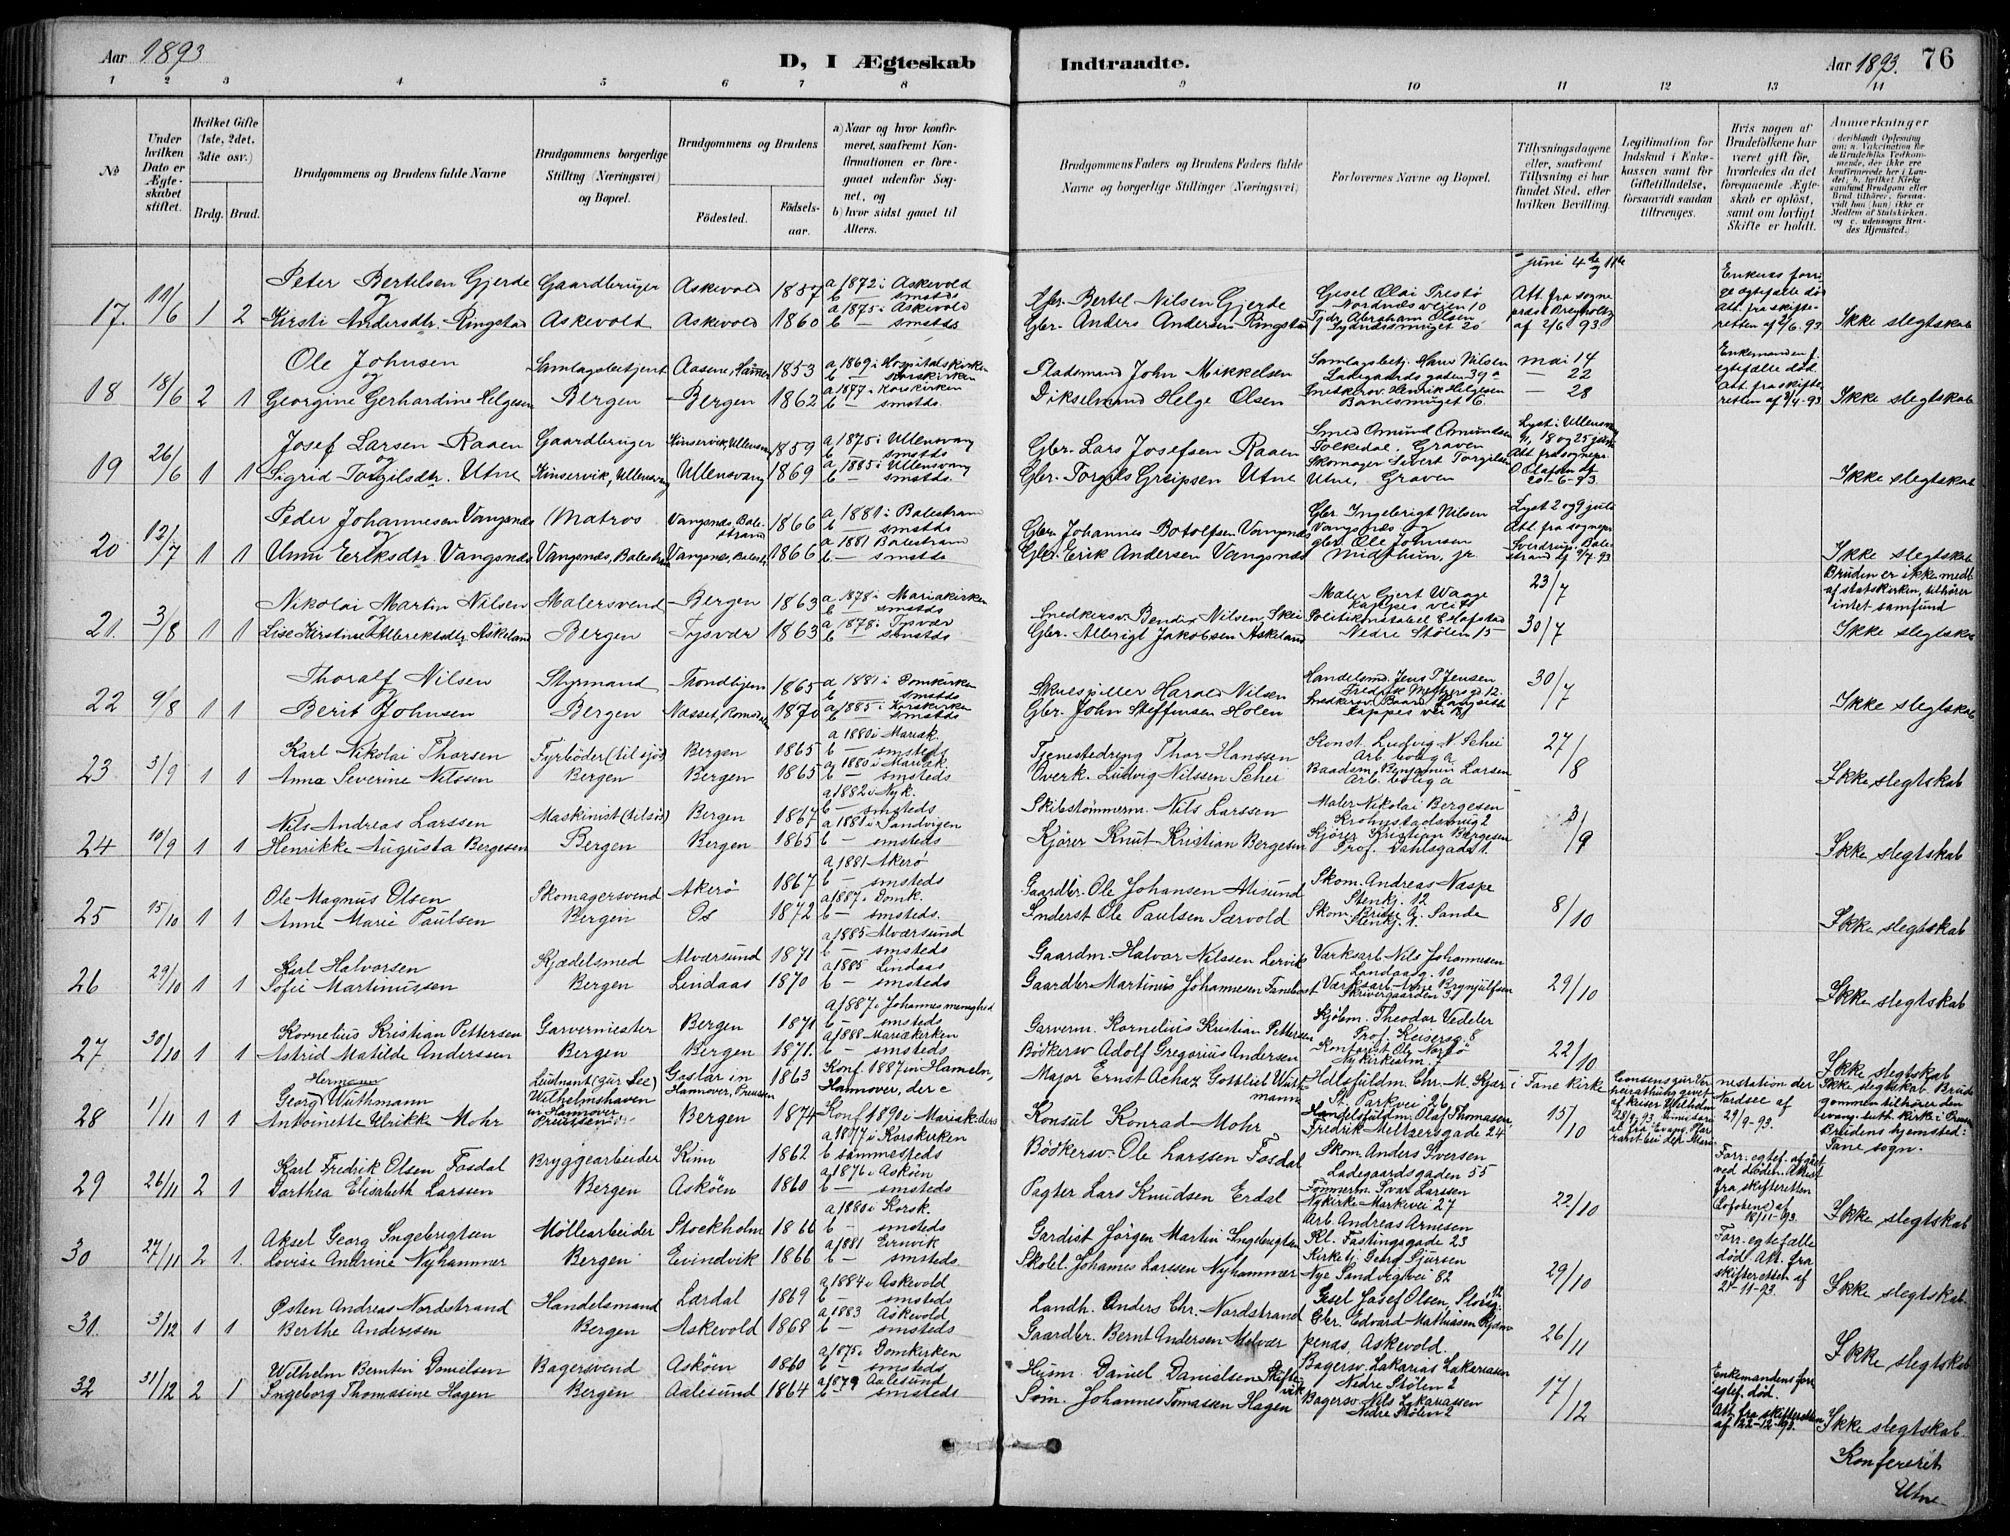 Aar 1893
D, I Ægteskab Indtraadte.
Aar 1893. 76
1 2 3 4 5 6 7 8 9 10 11 12 13 14
No
Under hvilken Dato er Ægteskabet stiftet.
Hvilket Gifte (1ste, 2det, 3die osv.)
Brdg. Brud.
Brudgommens og Brudens fulde Navne
Brudgommens borgerlige Stilling (Næringsvei) og Bopæl.
Brudgommens og Brudens
Fødested. Fødselsaar.
a) Naar og hvor konfirmeret, saafremt Konfirmationen er foregaaet udenfor Sognet, og
b) hvor sidst gaaet til Alters.
Brudgommens Faders og Brudens Faders fulde Navne og borgerlige Stillinger (Næringsvei)
Forlovernes Navne og Bopæl.
Tillysningsdagene eller, saafremt Tillysning ei har fundet Sted, efter hvilken Bevilling.
Legitimation for Indskud i Enkekassen samt for Giftetilladelse, forsaavidt saadan tiltrænges.
Hvis nogen af Brudefolkene har været gift før, hvorledes da det foregaaende Ægteskab er opløst, samt om lovligt Skifte er holdt.
Anmærkninger
17. 11/6 1 2 Peter Bertelsen Gjerde Gaardbruger Askevold 1857 a 1872 i Askevold b — smstds
og Kirsti Andersdtr. Ringstad Askevold Askevold 1860 a 1875 i Askevold b — smstds.
Gbr. Bertel Nilsen Gjerde
Gbr. Anders Andersen Ringstad
Nordnæsveien 10
juni 4de og 11te
Att. fra sogneprest
af 2/6 93
Ikke slegtskab
18 18/6 2 1 Ole Johnsen Samlagsbetjent 1853 a 1869 i Hospitalskirken b — Korskirken
og Georgine Gerhardine Helgesen Bergen Bergen 1862 a 1877 i Korskirken b — smstds.
John Mikkelsen
Helge Olsen
Samlagsbetj. Hans Nilsen
Ladegaardsgaden 39a
Snedkersv. Henrik Helgesen
mai 14
— 22
— 28
Enkemandens f. egtefælle død.
Att. fra skifteretten af
Ikke slegtskab
19 26/6 1 1 Josef Larsen Raaen Gaardbruger Kinservik, Ullensv. 1859 a 1875 i Ullensvang b — smstds
og Sigrid Torgilsdtr. Utne Kinservik, Ullensvang Ullensvang 1869 a 1885 i Ullensvang b — smstds.
Gbr. Lars Josefsen Raaen
Gbr. Torgils Greipsen Utne
Smed Amund Amundsen
Folkedal, Graven
Skomager Sivert Torgilsen
Utne, Graven
Lyst i Ullensvang
18 og 25 juni
Att. fra sognepr.
Olafsen af
20-6-93.
Ikke slegtskab
20 12/7 1 1 Peder Johannesen Vangsnæs Matros Vangsnæs, Balestrand 1866 a 1881 i Balestrand b — smstds
og Unni Eriksdtr. Vangsnæs Vangsnæs, Balestrand Vangsnæs, Balestr. 1866 a 1881 Balestrand b — smstds
Gbr. Johannes Botolfsen Vangsnæs
Gbr. Erik Andersen Vangsnæs
Gbr. Ingebrigt Nilsen
Vangsnæs og
gbr. Ole Johnsen
Midthun, jr.
Lyst 2 og 9 juli
Att. fra sognepr.
Sverdrup, Balestrand af 9/7 93
Ikke slegtskab
21. 3/8 1 1 Nikolai Martin Nilsen Malersvend Bergen 1863 a 1878 i Mariakirken b — smstds
og Lise Kirstine Albrektsdtr. Askeland Bergen Tysvær 1863 a 1878 i Tysvær b — smstds.
Snedkersv. Bendix Nilsen Skei
Gbr. Albrigt Jakobsen Askeland
Maler Gert Waage
Kappes veit
Politikonstabel E Hafstad
Nedre Stølen 15
23/7
30/7
Bruden er ikke medl. af statskirken, tilhører intet samfund
Ikke slegtskab
22 9/8 1 1 Thoralf Nilsen Styrmand Trondhjem 1865 a 1881 i Domkirken b — smstds
og Berit Johnsen Bergen Næsset, Romsdalen 1870 a 1885 i Korskirken b — smstds
Skuespiller Harald Nilsen
Gbr. John Steffensen Holen
Handelsmd. Jens P. Jensen
Fredrik Meltzersgd 12.
30/7
Ikke slegtskab
23 3/9 1 1 Karl Nikolai Thorsen Fyrbøder (til sjøs) Bergen 1865 a 1880 i Mariak. b — smsteds
Anna Severine Nilssen Bergen Bergen 1865 a 1880 i Mariak b — smsteds
Tjenestedreng Thor Hanssen
Overk. Ludvig Nilssen Schei
Konst. Ludvig N. Schei
Arb. bolig a
Baadsm. Benjamin Larsen
Arb. bolig a
27/8
Ikke slegtskab
24 10/9 1 1 Nils Andreas Larssen Maskinist (til sjøs) Bergen 1867 a 1882 i Nyk. b — smsteds
Henrikke Augusta Bergesen Bergen Bergen 1865 a 1881 i Sandvigen b — smsteds
Skibstømmerm. Nils Larssen
Kjører Knut Kristian Bergesen
Maler Nikolai Bergesen
Kronestadsmug 2
Kjører Kristian Bergesen
Prof. Dahlsgade 1.
3/9
Ikke slegtskab
25 15/10 1 1 Ole Magnus Olsen Skomagersvend Akerø 1867 a 1881 Akerø b — smsteds
Anne Marie Paulsen Bergen Os 1872 a 1887 i Domk. b — smsteds.
Gaardbr. Ole Johansen Misund
Inderst Ole Paulsen Særvold
Skom. Andreas Næspe
Stenkj. 12
Skom. A. Sande
Stenkj. 1.
8/10
Ikke slegtskab
26 29/10 1 1 Karl Halvorsen Kjædelsmed Alværsund 1871 a 1885 Alværsund b — smsteds
Sofie Martinussen Bergen Lindaas 1870 a 1885 Lindaas b — smsteds
Gaardm. Halvor Nilssen Lervik
Gaardbr Martinus Johannesen Fanebust
Værksarb Nils Johannesen
Landaasg. 10
Værksarb. Arne Brynjulfsen
Skrivergaarden 31
29/10
Ikke slegtskab
27 30/10 1 1 Kornelius Kristian Pettersen Garvermester Bergen 1871 a 1887 i Johannes menighed b — smsteds
Astrid Matilde Anderssen Bergen Bergen 1871. a 1888 Mariækirken b — smsteds
Garverm. Kornelius Kristian Pettersen
Bødkersv Adolf Gregorius Andersen
Kjøbm. Theodor Vedeler
Prof. Keisersg. 8
Kontorist Ole
22/10
Ikke slegtskab
28 1/11 1 1 Hermann Georg Wuthmann Leutnant (zur See) Wilhelmshaven in Hannover Preussen Goslar in Hannover, Preusen 1863 Konf. 1887 in Hameln, Hannover, der e
Antoinette Ulrikke Mohr Bergen 1874 Konf 1890 i Mariak. ders
Major Ernst Achaz Gottlieb Wuthmann
Konsul Konrad Mohr
Hdlsfuldm. Chr. M. Kjær
Parkvei 26
Handelsfuldm. Olaf Thomassen,
Fredrik Meltzersgade 24
i Fane kirke
15/10
Consens zur Verheirathung givet af keiser Wilhelm
29/9-93.
Ikke slegtskab. Brudgommen tilhører den evang. luth. kirke i Preussen
Brudens hjemsted: Fane sogn.
29 26/11 2 1 Karl Fredrik Olsen Fosdal Bryggearbeider Kinn 1862 a 1877 i Korskirken b sammesteds
Dorthea Elisabeth Larssen Bergen Askøen 1860 a 1876 i Askøen b — smsteds
Bødkersv. Ole Larssen Fosdal
Pagter Lars Knudsen Erdal
Skom. Anders Iversen
Ladegaardsgaden 55
Tømmerm. Ivar Larssen
Nykirke Markvei 27
22/10
Forr. egtef. afgaaet ved døden. Attest fra skifteretten (Lofoten) af 18/11-93.
Ikke slegtskab
30 27/11 2 1. Aksel Georg Ingebrigtsen Møllearbeider Stockholm 1866 a 1880 i Korsk. b — smsteds
Lovise Andrine Nyhammer Bergen Evindvik 1866 a 1881 b — smsteds.
Gardist Jørgen Martin Ingebrigtsen
Skolel. Johannes Larssen Nyhammer
Arb. Andreas Arnesen
Kl. Fastingsgade 23
Kirketj. Georg Sjursen
Nye Sandvigsvei 82
29/10
Forr. egtefælle død. Att. fra skifteretten af 21-11-93.
Ikke slegtskab.
31. 3/12 1 1 Østen Andreas Nordstrand Handelsmand Lærdal 1869 a 1884 i Askevold b — smsteds
Berthe Andersen Bergen Askevold 1868 a 1883 Askevold b — smsteds
Landh. Anders Chr. Nordstrand
Gaardbr. Bernt Andersen Melvær
Josef Olsen,
Gbr. Edvard Mathiasen
Askevold.
26/11
Ikke slegtskab
32 31/12 2 1 Wilhelm Berntin Danielsen Bagersvend Askøen 1860 a 1875 i Domkirken b — smsteds
Ingeborg Thomasine Hagen Bergen Aalesund 1864 a 1879 Aalesund b — smsteds
Husm. Daniel Danielsen
Søm. Johannes Tomassen Hagen
Bagersv. Zakarias Zakariassen
Nedre Stølen 2
Bagersv Nils Zakariassen
Nedre Stølen 2
17/12
Enkemandens forr. egtef. død.
Att. fra skifteretten af 22-12-93.
Ikke slegtskab
Konfereret
Utne